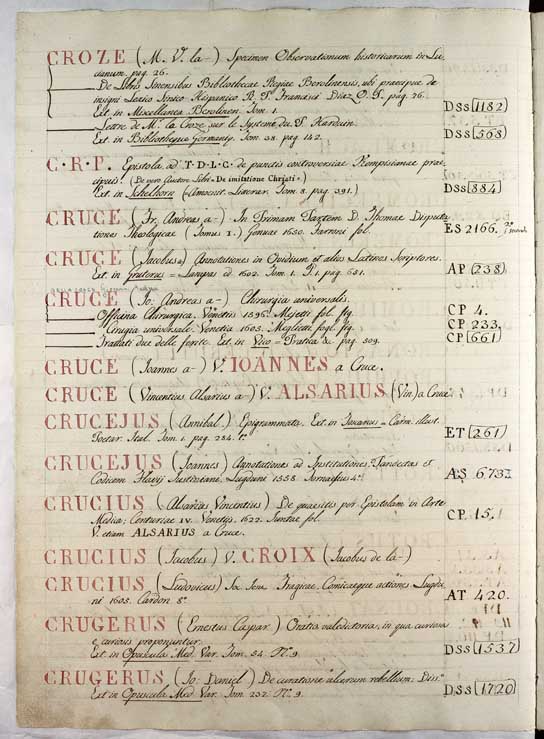 CROZE (M. V. la-) Specimen Observationum historicarum in Lu-
cianum. pag. 26.
De Libris Sinensibus Bibliothecae Regiae Berolinensis, ubi praecipue de
insigni Lexico Sinico Hispanico R. P. Francisci Diaz O. P. pag. 26.
Ext. in Miscellanea Berolinen. Tom. 1. DSS 1182
Lettre de M. la Croze sur le Systeme du P. Harduin.
Ext. in Bibliotheque Germaniq. Tom. 38. pag. 142. DSS 568
C. R. P. Epistola ad T. D. L. C. de punctis controversiae Kempisianae prae-
cipuis. (De vero Auctore Libri = De imitatione Christi =)
Ext. in Schelhorn (Amoenit. Literar. Tom. 8. pag. 391.) DSS 884
CRUCE (Fr. Andreas a-) In Primam Partem D. Thomae Disputa-
tiones Theologicae (Tomus 1.) Genuae 1650. fol. ES 2166.
CRUCE (Jacobus a) Annotationes in Ovidium et alios Latinos Scriptores.
Ext. in Gruterus = Lampas &c. 1602. Tom. 1. pag. 631. AP 238
CRUCE (Jo. Andreas a-) Chirurgia universalis.
Officina Chirurgica. Venetiis 1596. Mejetti fol. fig. CP 4.
Cirugia universale. Venetia 1605. Meglietti fogl. fig. CP 233.
Trattati due delle ferite. Ext. in Vico = Pratica &c. pag. 309. CP 661
CRUCE (Joannes a-) V. IOANNES a Cruce.
CRUCE (Vincentius Alsarius a-) V. ALSARIUS (Vin.) a Cruce
CRUCEJUS (Annibal.) Epigrammata. Ext. in Carm. illust.
Poetar. Ital. Tom. 1. pag. 284. ET 261
CRUCEJUS (Joannes) Annotationes ad Institutiones, Pandectas et
Codicem Flavij Justiniani. Lugduni 1558. Tornaesius 4.º AS 6733
CRUCIUS (Alsarius Vincentius) De quaesitis per Epistolam in Arte
Medica, Centuriae IV. Venetijs. 1622. Juntae fol. CP. 15.
V. etiam ALSARIUS a Cruce.
CRUCIUS (Jacobus) V. CROIX (Jacobus de la-)
CRUCIUS (Ludovicus) Soc. Jesu Tragicae, Comicaeque actiones. Lugdu-
ni 1605. Cardon 8.º AT 420.
CRUGERUS (Ernestus Caspar) Oratio valedictoria, in qua curiosa
e curiosis proponuntur.
Ext. in Opuscula Med. Var. Tom. 54. Nº. 9. DSS 1537
CRUGERUS (Jo: Daniel) De curatione ulcerum rebellium; Diss.
Ext. in Opuscula Med. Var. Tom. 232. Nº. 9. DSS 1720